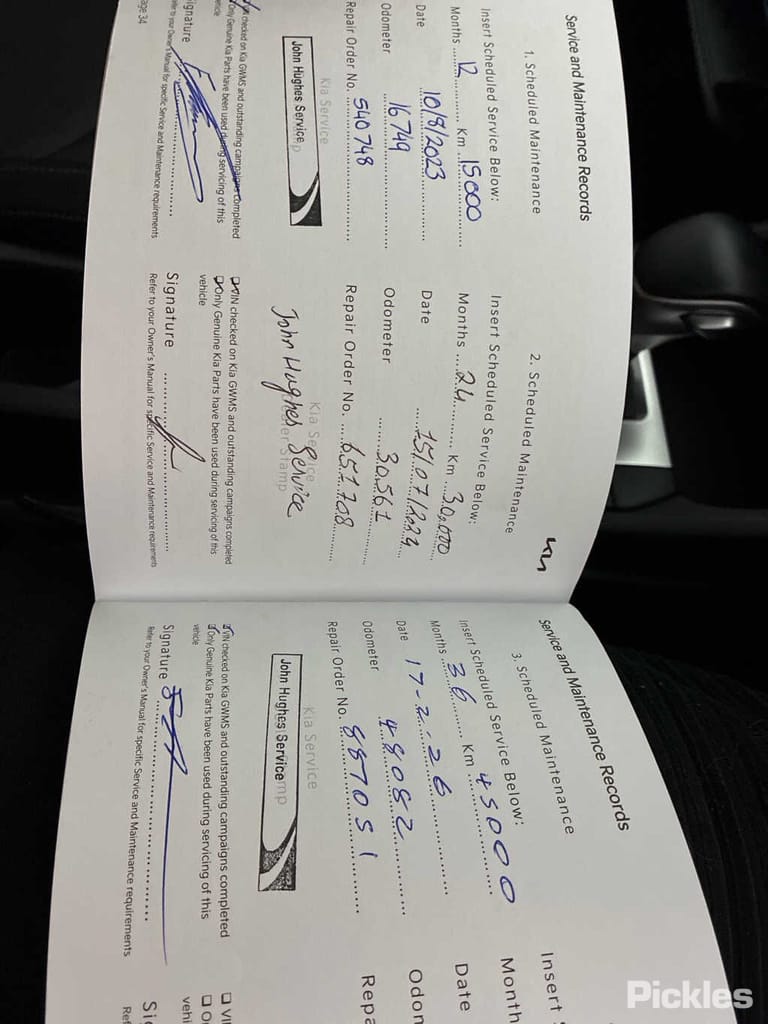 Service and Maintenance Records
1. Scheduled Maintenance
Insert Scheduled Service Below:
Months 12 Km 15000
Date 10/8/2023
Odometer 16749
Repair Order No. 540748
Kia Service
John Hughes Service
VIN checked on Kia GWMS and outstanding campaigns completed
Only Genuine Kia Parts have been used during servicing of this
vehicle
Signature
Refer to your Owner's Manual for specific Service and Maintenance requirements
age 34
2. Scheduled Maintenance
Insert Scheduled Service Below:
Months 24 Km 30,000
Date 15/07/2024
Odometer 30,561
Repair Order No. 651708
Kia Service
Dealer Stamp
John Hughes Service
VIN checked on Kia GWMS and outstanding campaigns completed
Only Genuine Kia Parts have been used during servicing of this
vehicle
Signature
Refer to your Owner's Manual for specific Service and Maintenance requirements
Service and Maintenance Records
3. Scheduled Maintenance
Insert Scheduled Service Below:
Months 36 Km 45000
Date 17-2-26
Odometer 48082
Repair Order No. 887051
Kia Service
John Hughes Service
VIN checked on Kia GWMS and outstanding campaigns completed
Only Genuine Kia Parts have been used during servicing of this
vehicle
Signature
Refer to your Owner's Manual for specific Service and Maintenance requirements
Insert
Month
Date
Odom
Repa
VI
vehi
Si
Ref
Pickles